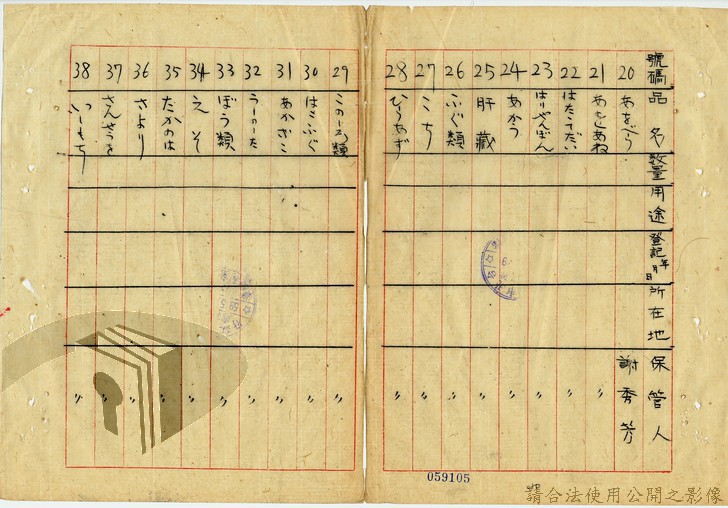 號碼 品名 數量 用途 登記年月日 所在地 保管人
20 あをべら 謝秀芳
21
22 はたたてだい
23 はりせんぼん 〃
24 あかう 〃
25 肝藏 〃
26 ふぐ類 〃
27 こち 〃
28 ひらあず 〃
29 このしろ類 〃
30 はこふぐ 〃
31 あかざこ 〃
32 うーのーた 〃
33 ぼう類 〃
34 えそ 〃
35 たかのは 〃
36 さより 〃
37
38 いしもち 〃
059105
請合法使用公開之影像